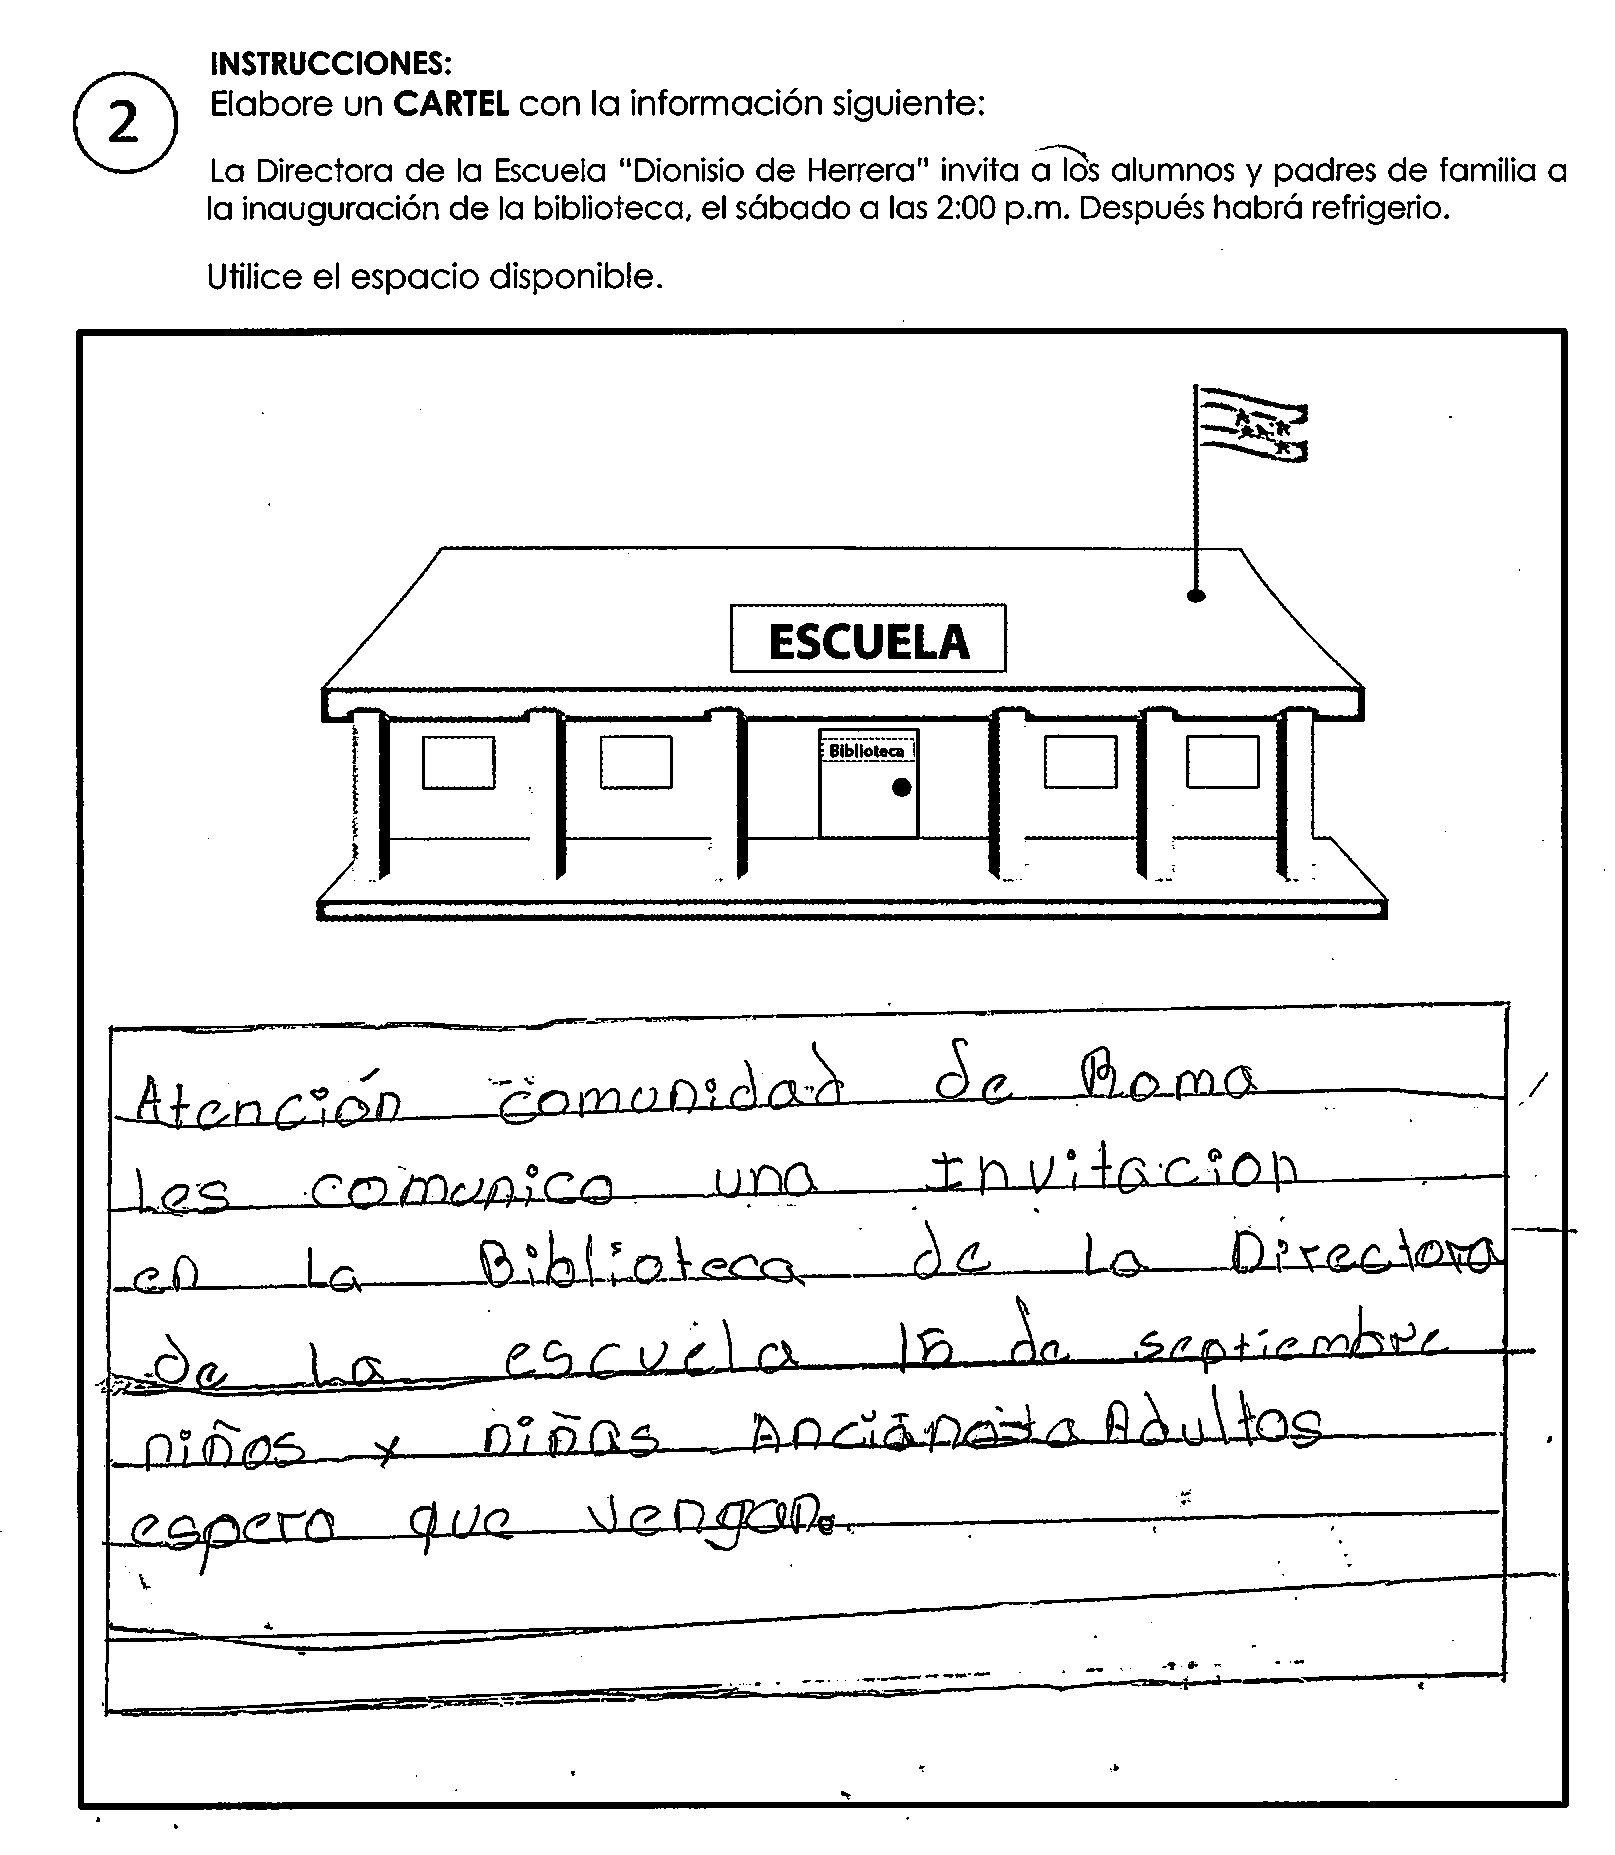 INSTRUCCIONES:
2
Elabore un CARTEL con la información siguiente:
La Directora de la Escuela "Dionisio de Herrera" invita a los alumnos y padres de familia a
la inauguración de la biblioteca, el sábado a las 2:00 p.m. Después habrá refrigerio.
Utilice el espacio disponible.
ESCUELA
Biblioteca
Atención comunidad de Roma
Les comunico una Invitacion
en La Biblioteca de La Directora
de La escuela 15 de septiembre
niños y niñas Adultos
espero que vengan.